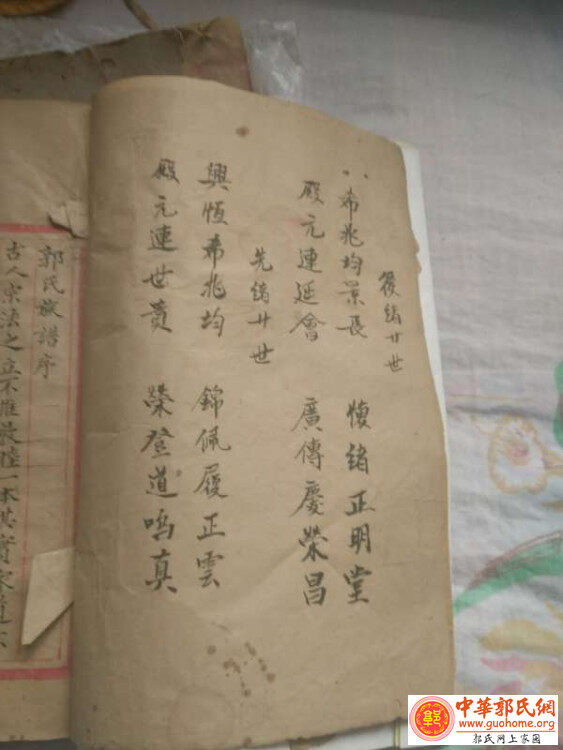 後緒廿世
希兆均景長 懷緒正明堂
殿元連延會 廣傳慶榮昌
先緒廿世
興恆希兆均 錦佩履正雲
殿元連世貴 榮登道鳴真
郭氏族譜序
古人宗法之立不惟敦睦一本其實家道
中華郭氏網
www.guohome.org
郭氏网上家園